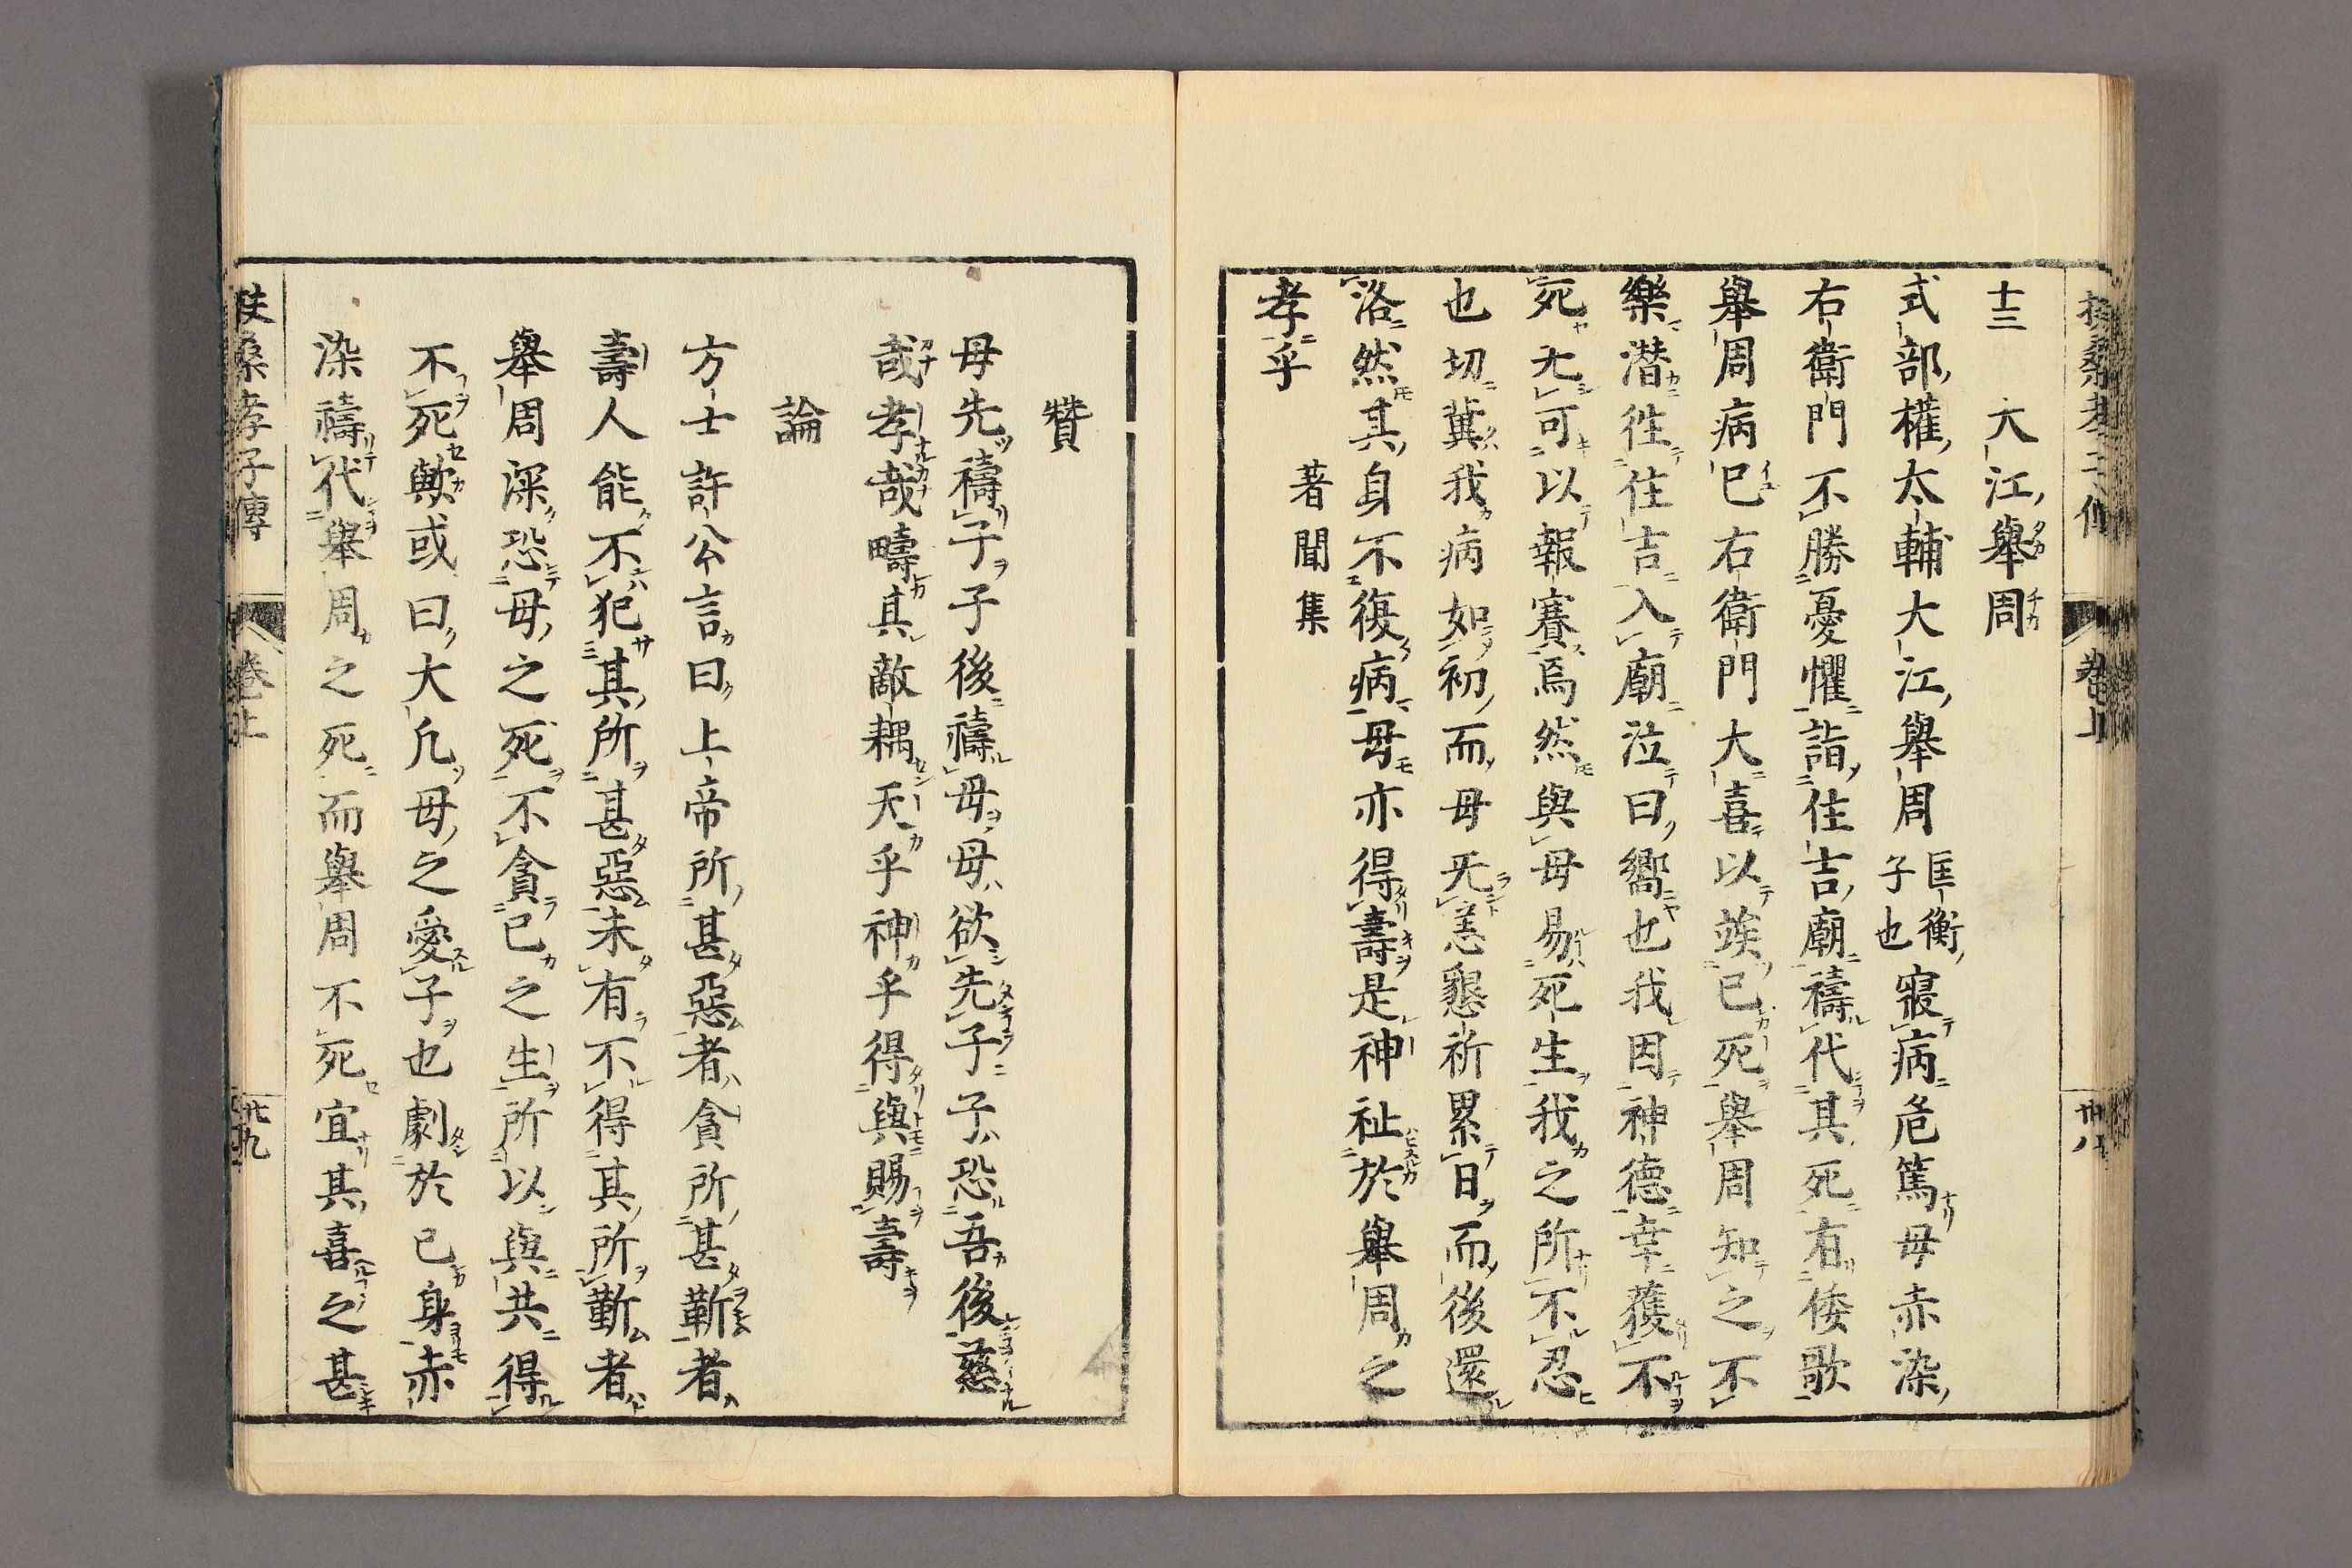 十三　大江舉周
式部權太輔大江舉周匡衡子也寢病危篤母赤染
右衛門不勝憂懼詣住吉廟禱代其死有倭歌
舉周病已右衛門大喜以竢己死舉周知之不
樂潜徃住吉入廟泣曰嚮也我因神德幸獲不
死无可以報賽焉然與母易死生我之所不忍
也切冀我病如初而母无恙懇祈累日而後還
洛然其身不復病母亦得壽是神祉於舉周之
孝乎　著聞集
扶桑孝子傳　卷上　卅八
贊
母先禱子子後禱母母欲先子子恐吾後慈
哉孝哉疇其敵耦天乎神乎得與賜壽
論
方士許公言曰上帝所甚惡者貪所甚靳者
壽人能不犯其所甚惡未有不得其所靳者
舉周深恐母之死不貪己之生所以與共得
不死歟或曰大凡母之愛子也劇於己身赤
染禱代舉周之死而舉周不死宜其喜之甚
扶桑孝子傳　卷上　卅九